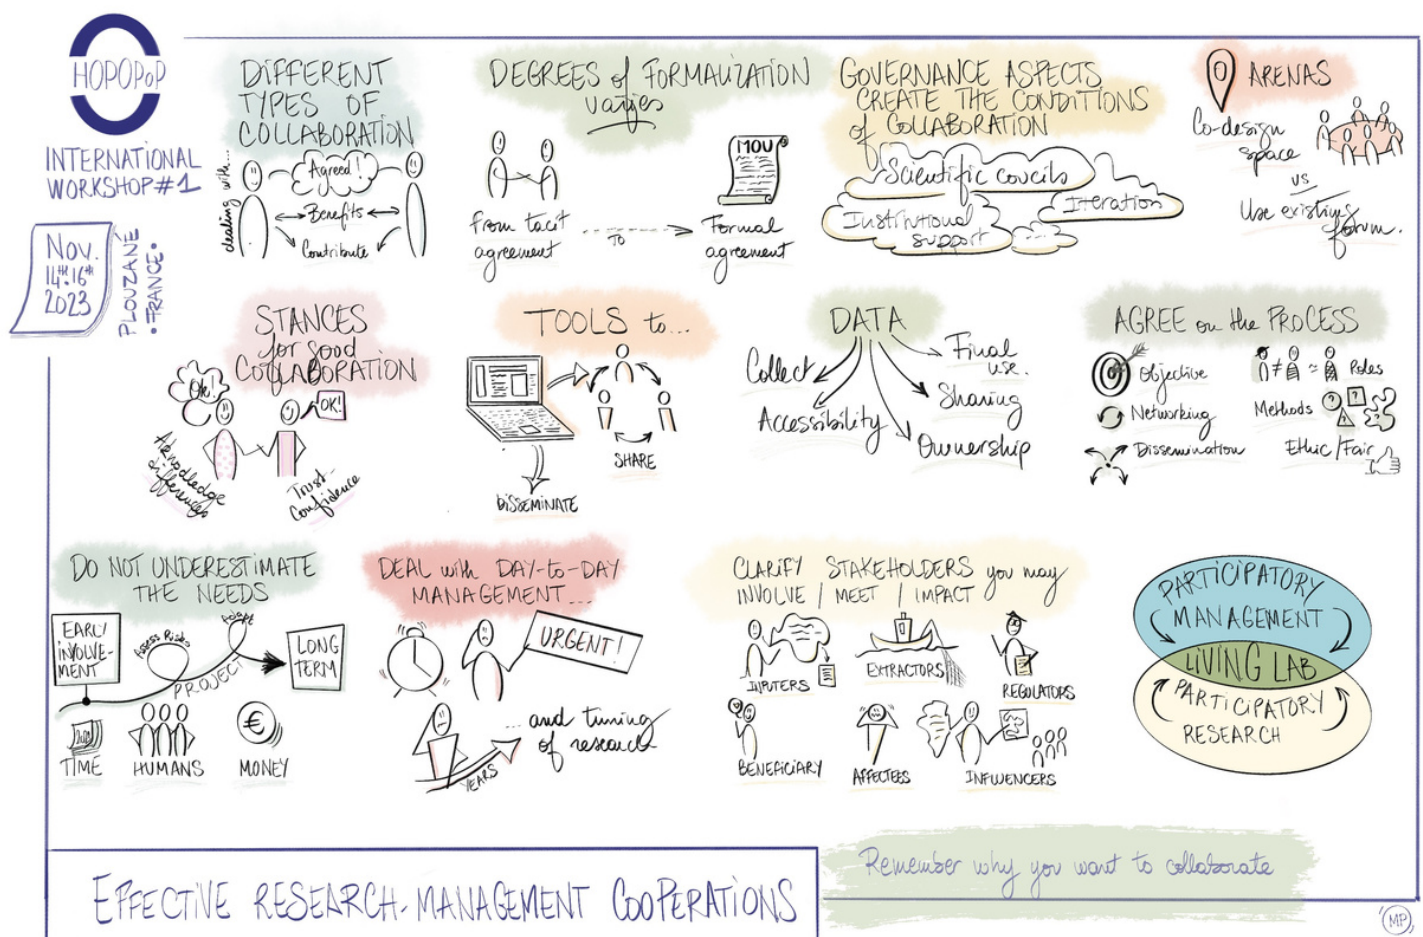 HOPOPoP
INTERNATIONAL
WORKSHOP #1
NOV.
14th.16th
2023
PLOUZANE
• FRANCE •
DIFFERENT
TYPES OF
COLLABORATION
dealing with...
Agreed!
Benefits
Contribute
DEGREES of FORMALIZATION
varies
From tacit
agreement
TO
MOU
Formal
agreement
GOVERNANCE ASPECTS
CREATE THE CONDITIONS
of COLLABORATION
Scientific councils
Institutional
support
Iteration
...
ARENAS
Co-design
space
vs
Use existing
forum.
STANCES
for good
COLLABORATION
Ok!
OK!
Aknodledge
differences
Trust-
Confidence
TOOLS to...
SHARE
DISSEMINATE
DATA
Collect
Accessibility
Final
use.
Sharing
Ownership
AGREE on the PROCESS
Objective
Networking
Dissemination
≠ ≈ Roles
Methods
? ?
Ethic/Fair
DO NOT UNDERESTIMATE
THE NEEDS
EARLY
INVOLVE-
MENT
Assess Risks
Adapt
PROJECT
LONG
TERM
TIME
HUMANS
€
MONEY
DEAL with DAY-to-DAY
MANAGEMENT...
URGENT!
YEARS
... and timing
of research
CLARIFY STAKEHOLDERS you may
INVOLVE / MEET / IMPACT
INPUTERS
EXTRACTORS
REGULATORS
BENEFICIARY
AFFECTEES
INFLUENCERS
PARTICIPATORY
MANAGEMENT
LIVING LAB
PARTICIPATORY
RESEARCH
EFFECTIVE RESEARCH-MANAGEMENT COOPERATIONS
Remember why you want to collaborate
MP